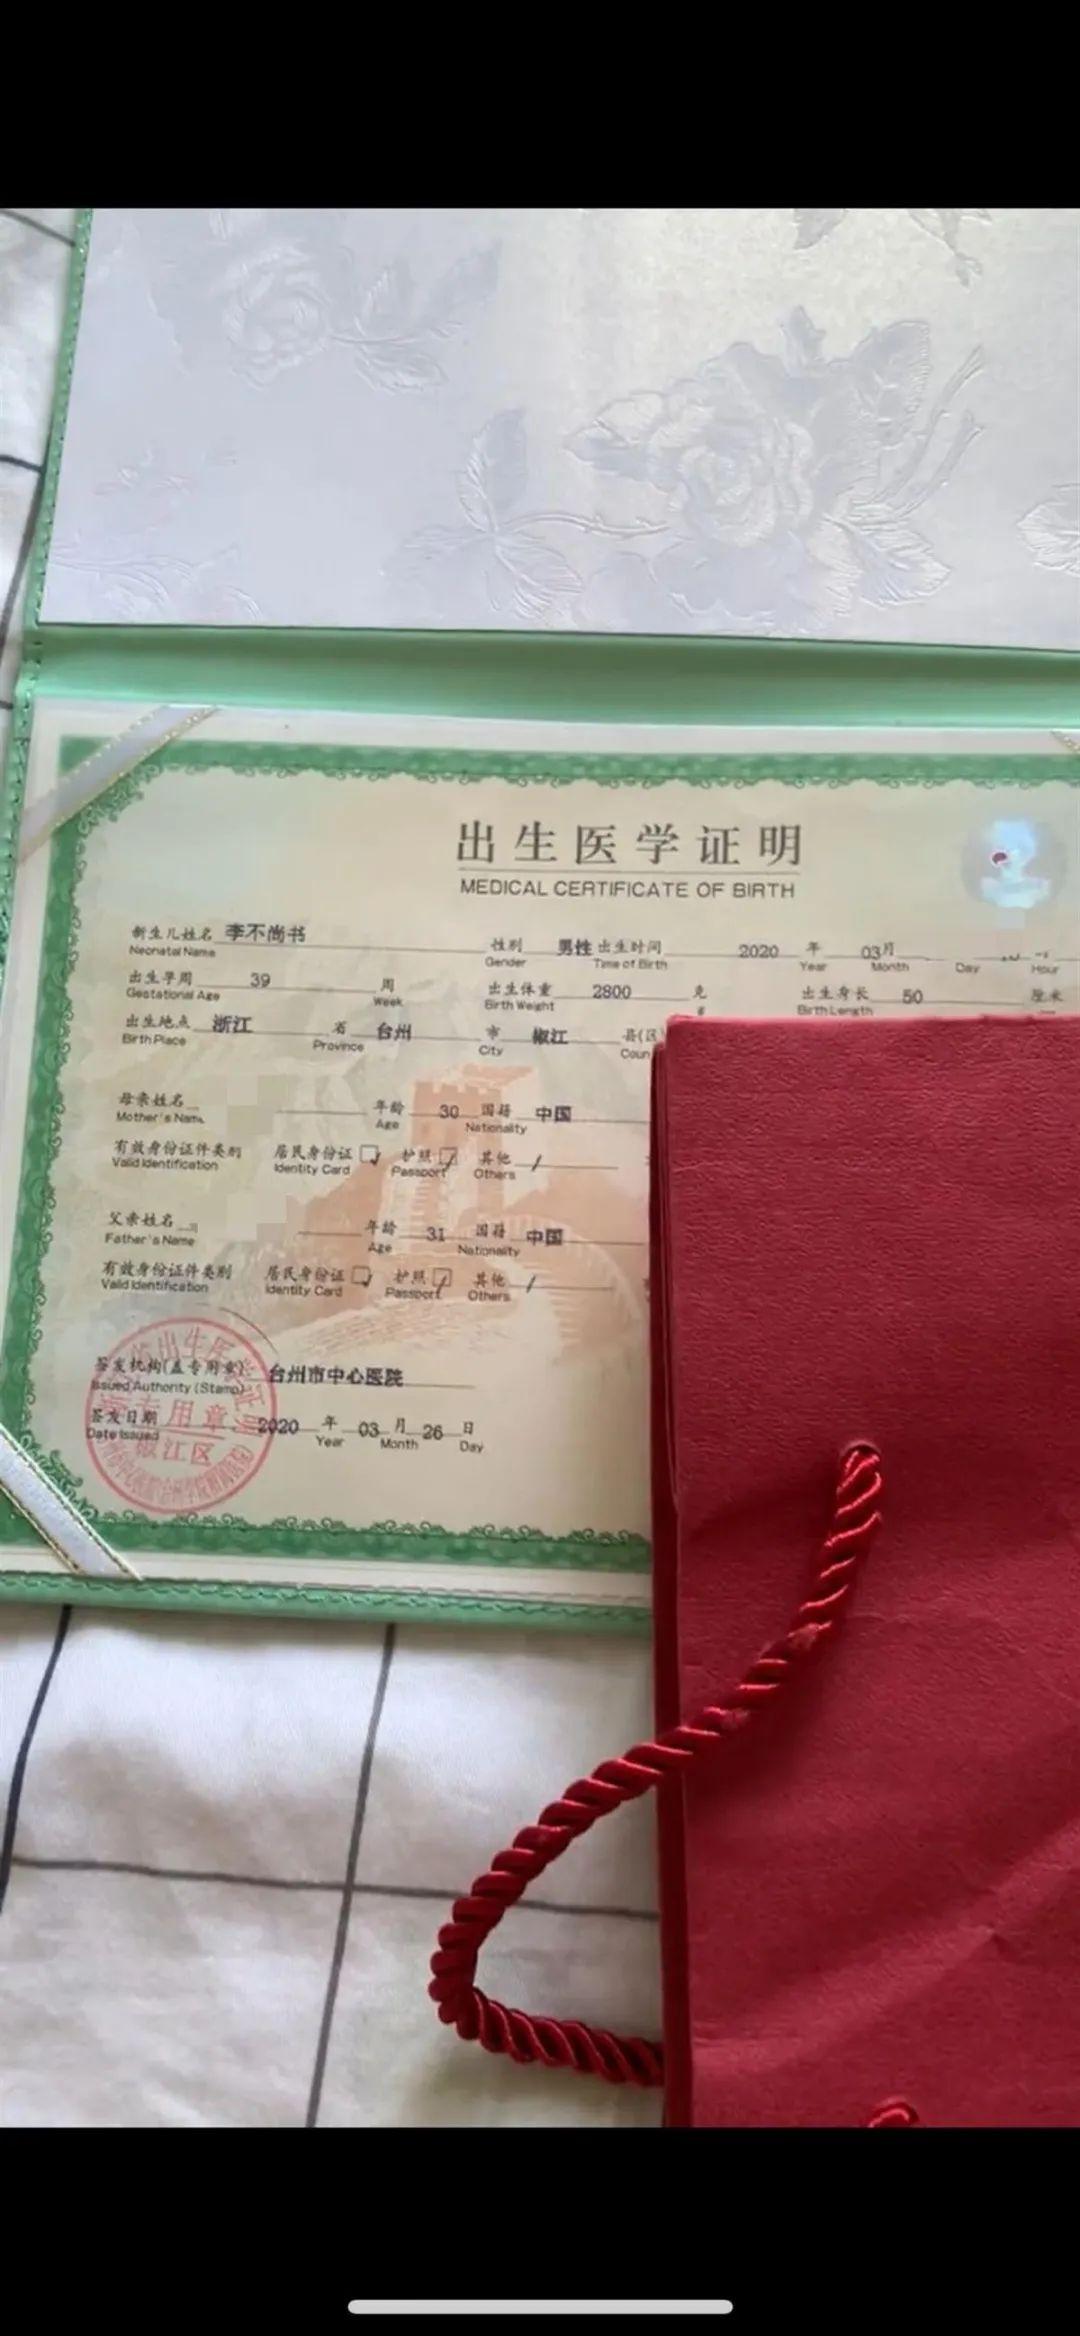 出生医学证明
MEDICAL CERTIFICATE OF BIRTH
新生儿姓名 李不尚书 性别 男性 出生时间 2020 年 03月
Neonatal Name Gender Time of Birth Year Month Day Hour
出生孕周 39 周 出生体重 2800 克 出生身长 50 厘米
Gestational Age Week Birth Weight g Birth Length
出生地点 浙江 省 台州 市 椒江 县(区
Birth Place Province City Coun
母亲姓名 年龄 30 国籍 中国
Mother's Name Age Nationality
有效身份证件类别 居民身份证 护照 其他 /
Valid Identification Identity Card Passport Others
父亲姓名 年龄 31 国籍 中国
Father's Name Age Nationality
有效身份证件类别 居民身份证 护照 其他 /
Valid Identification Identity Card Passport Others
签发机构(盖专用章) 台州市中心医院
Issued Authority (Stamp)
签发日期 2020 年 03 月 26 日
Date Issued Year Month Day
专用章
椒江区